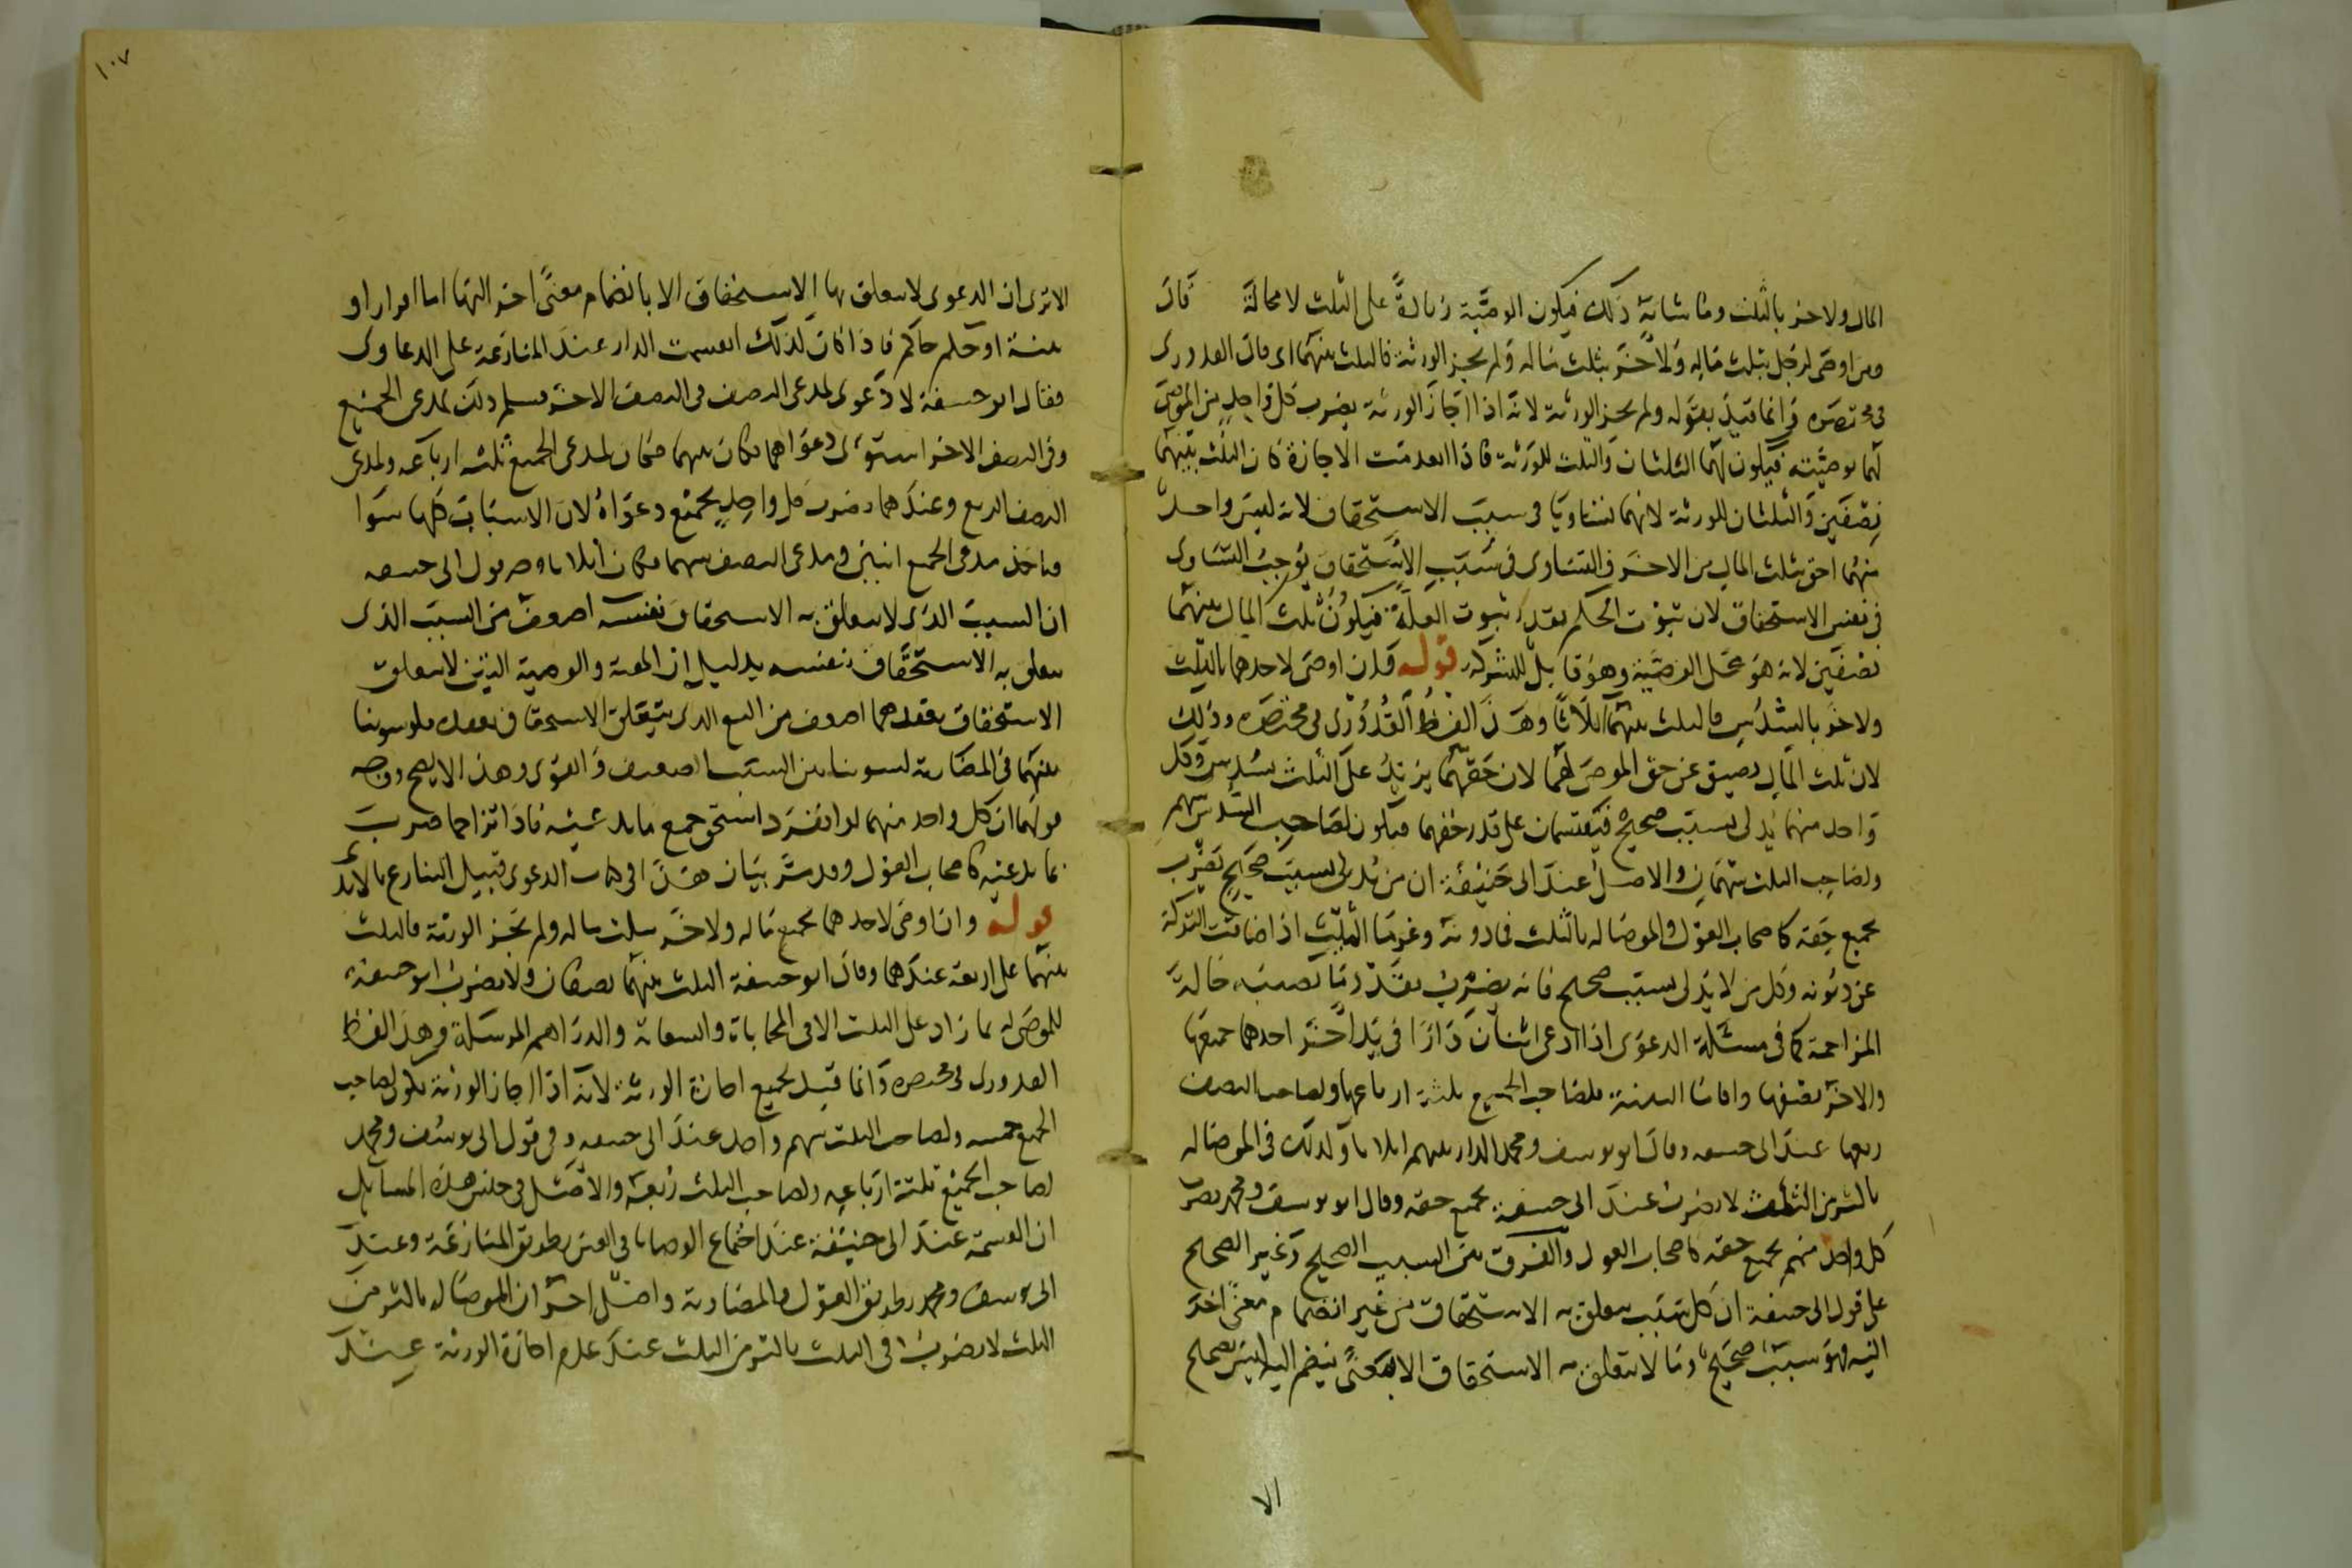 المال ولاخر بالثلث وما شابه ذلك فيكون الوصية زيادة على الثلث لا محالة قال
ومن اوصى لرجل بثلث ماله ولاخر بثلث ماله ولم يجز الورثة فالثلث بينهما اى قال القدورى
فى مختصره وانما قيد بقوله ولم يجز الورثة لانه اذا اجاز الورثة يضرب كل واحد من الموصى
لهما بوصيته فيكون لهما الثلثان والثلث للورثة فاذا انعدمت الاجازة كان الثلث بينهما
نصفين والثلثان للورثة لانهما تساويا فى سبب الاستحقاق لانه ليس واحد
منهما احق بثلث المال من الاخر والتساوى فى سبب الاستحقاق يوجب التساوى
فى نفس الاستحقاق لان ثبوت الحكم بقدر ثبوت العلة فيكون ثلث المال بينهما
نصفين لانه هو محل الوصية وهو قابل للشركة قوله فان اوصى لاحدهما بالثلث
ولاخر بالسدس فالثلث بينهما اثلاثا وهذا لفظ القدورى فى مختصره وذلك
لان ثلث المال يضيق عن حق الموصى لهما لان حقهما يزيد على الثلث بسدس وكل
واحد منهما يدلى بسبب صحيح فيقتسمان على قدر حقهما فيكون لصاحب السدس سهم
ولصاحب الثلث سهمان والاصل عند ابى حنيفة ان من يدلى بسبب صحيح يضرب
بجميع حقه كاصحاب العول والموصا له بالثلث فما دونه وغرما الميت اذا ضاقت التركة
عن ديونه وكل من لا يدلى بسبب صحيح فانه يضرب بقدر ما يصيبه حالة
المزاحمة كما فى مسئلة الدعوى اذا ادعى اثنان دارا فى يد اخر احدهما جميعها
والاخر نصفها واقاما البينة فلصاحب الجميع ثلثة ارباعها ولصاحب النصف
ربعها عند ابى حنيفه وقال ابو يوسف ومحمد الدار بينهم اثلاثا وكذلك فى الموصا له
باكثر من الثلث لا يضرب عند ابى حنيفة بجميع حقه وقال ابو يوسف ومحمد يضرب
كل واحد منهم بجميع حقه كاصحاب العول والفرق بين السبب الصحيح وغير الصحيح
على قول ابى حنيفة ان كل سبب يتعلق به الاستحقاق من غير انضمام معنى اخر
اليه فهو سبب صحيح وما لا يتعلق به الاستحقاق الا بمعنى ينضم اليه ليس بصحيح
الا
١٠٧
الا ترى ان الدعوى لا يتعلق بها الاستحقاق الا بانضمام معنى اخر اليها اما اقرار او
بينة او حكم حاكم فاذا كان كذلك انقسمت الدار عند المنازعة على الدعاوى
فقال ابو حنيفة لا دعوى لمدعى النصف فى النصف الاخر فسلم ذلك لمدعى الجميع
وفى النصف الاخر استوى دعواهما فكان بينهما فكان لمدعى الجميع ثلثه ارباعه ولمدعى
النصف الربع وعندهما يضرب كل واحد بجميع دعواه لان الاسباب كلها سوا
فياخذ مدعى الجميع اثنين ومدعى النصف سهما فكان اثلاثا وجه قول ابى حنيفه
ان السبب الذى لا يتعلق به الاستحقاق بنفسه اضعف من السبب الذى
يتعلق به الاستحقاق بنفسه بدليل ان الهبة والوصية الذين لا يتعلق
الاستحقاق بعقدهما اضعف من البيع الذى يتعلق الاستحقاق بعقده فلو سوينا
بينهما فى المضاربة لسوينا بين السبب الضعيف والقوى وهذا لا يصح ووجه
قولهما ان كل واحد منهما لو انفرد استحق جميع ما يدعيه فاذا تزاحما ضرب
بما يدعيه كاصحاب العول وقد مر بيان هذا فى كتاب الدعوى قبيل التنازع بالايدى
قوله وان اوصى لاحدهما بجميع ماله ولاخر بثلث ماله ولم يجز الورثة فالثلث
بينهما على اربعة عندهما وقال ابو حنيفة الثلث بينهما نصفان ولا يضرب ابو حنيفة
للموصى له بما زاد على الثلث الا فى المحاباة والسعاية والدراهم المرسلة وهذا لفظ
القدورى فى مختصره وانما قيد بجميع اجازة الورثة لانه اذا اجاز الورثة يكون لصاحب
الجميع خمسه ولصاحب الثلث سهم واحد عند ابى حنيفه وفى قول ابى يوسف ومحمد
لصاحب الجميع ثلثة ارباعه ولصاحب الثلث ربعه والاصل فى جنس هذه المسايل
ان القسمة عند ابى حنيفة عند اجتماع الوصايا فى العين بطريق المنازعة وعند
ابى يوسف ومحمد بطريق العول والمضاربة واصل اخر ان الموصا له باكثر من
الثلث لا يضرب فى الثلث باكثر من الثلث عند عدم اجازة الورثة عند